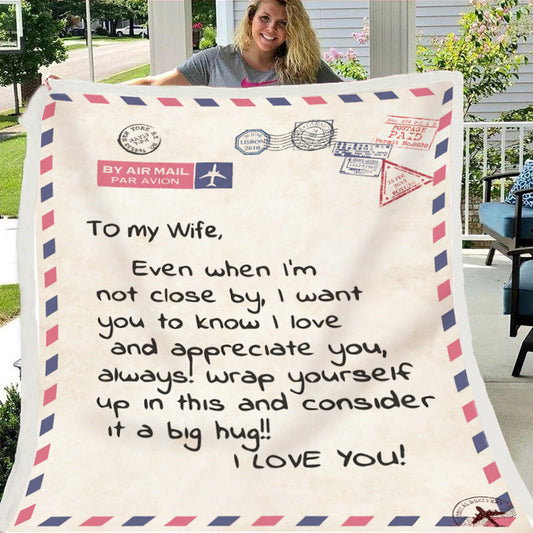 POSTAGE
PAID
LISBON
2018
BY AIR MAIL
PAR AVION
To my Wife,
Even when I'm
not close by, I want
you to know I love
and appreciate you,
always! Wrap yourself
up in this and consider
it a big hug!!
I LOVE YOU!